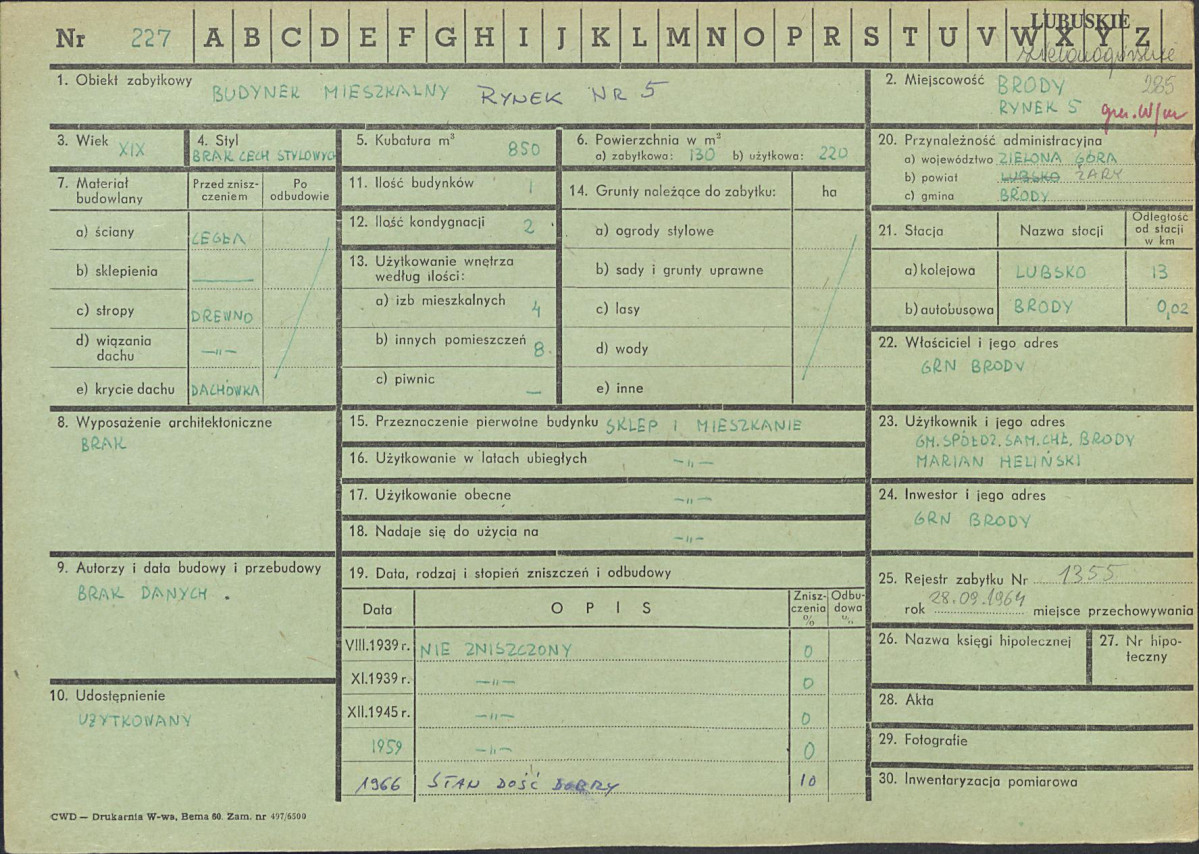 LUBUSKIE
Nr 227 A B C D E F G H I J K L M N O P R S T U V W X Y Z
Zielonogórskie
1. Obiekt zabytkowy BUDYNEK MIESZKALNY RYNEK NR 5
2. Miejscowość BRODY 285
RYNEK 5
3. Wiek XIX
4. Styl
BRAK CECH STYLOWYCH
5. Kubatura m³ 850
6. Powierzchnia w m²
a) zabytkowa: 130 b) użytkowa: 220
20. Przynależność administracyjna
a) województwo ZIELONA GÓRA
b) powiat LUBSKO ŻARY
c) gmina BRODY
7. Materiał budowlany
Przed zniszczeniem
Po odbudowie
a) ściany CEGŁA
b) sklepienia —
c) stropy DREWNO
d) wiązania dachu —„—
e) krycie dachu DACHÓWKA
11. Ilość budynków 1
12. Ilość kondygnacji 2
13. Użytkowanie wnętrza
według ilości:
a) izb mieszkalnych 4
b) innych pomieszczeń 8
c) piwnic —
14. Grunty należące do zabytku: ha
a) ogrody stylowe
b) sady i grunty uprawne
c) lasy
d) wody
e) inne
21. Stacja Nazwa stacji Odległość od stacji w km
a) kolejowa LUBSKO 13
b) autobusowa BRODY 0,02
22. Właściciel i jego adres
GRN BRODY
8. Wyposażenie architektoniczne
BRAK
15. Przeznaczenie pierwotne budynku SKLEP I MIESZKANIE
16. Użytkowanie w latach ubiegłych —„—
17. Użytkowanie obecne —„—
18. Nadaje się do użycia na —„—
23. Użytkownik i jego adres
GM. SPÓŁDZ. SAM. CHŁ. BRODY
MARIAN HELIŃSKI
24. Inwestor i jego adres
GRN BRODY
9. Autorzy i data budowy i przebudowy
BRAK DANYCH.
19. Data, rodzaj i stopień zniszczeń i odbudowy
Data OPIS Zniszczenia % Odbudowa %
VIII.1939 r. NIE ZNISZCZONY 0
XI.1939 r. —„— 0
XII.1945 r. —„— 0
1959 —„— 0
1966 STAN DOŚĆ DOBRY 10
25. Rejestr zabytku Nr 1355
rok 28.09.1964 miejsce przechowywania
26. Nazwa księgi hipotecznej
27. Nr hipoteczny
10. Udostępnienie
UŻYTKOWANY
28. Akta
29. Fotografie
30. Inwentaryzacja pomiarowa
CWD — Drukarnia W-wa, Bema 60. Zam. nr 497/6500